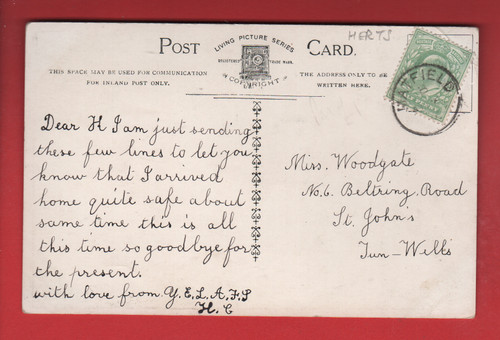 HERTS
POST CARD.
LIVING PICTURE SERIES
REGISTERED TRADE MARK
COPYRIGHT
THIS SPACE MAY BE USED FOR COMMUNICATION
FOR INLAND POST ONLY.
THE ADDRESS ONLY TO BE
WRITTEN HERE.
HATFIELD
Dear H I am just sending
these few lines to let you
know that I arrived
home quite safe about
same time this is all
this time so goodbye for
the present.
with love from Y.E.L.A.F.S
H.C
Miss. Woodgate
No.6. Beltring Road
St. John's
Tun-Wells